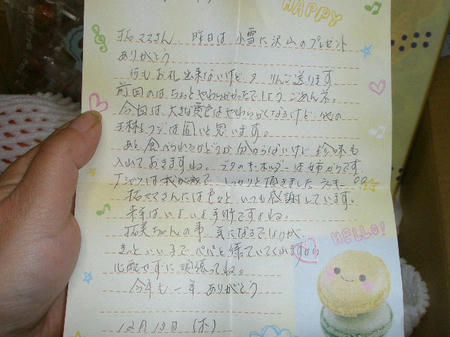 HAPPY
昨日は小雪に沢山のプレゼント
ありがとう
何もお礼出来ないけど りんご送ります
前回のはちょっとやわらかかったでしょう ごめんネ。
今回は大きな はやわらかくなるけど、他の
王林、フジは固いと思います。
あと食べられるかどうか分からないけど 珍味も
入れておきますね。ブタのキーホルダーは姉からです
Tシャツは我が家で しっかりと頂きました
さんには いつも感謝しています。
来年は いよいよ ですね。
ちゃんの事、気になるでしょうが
きっといい子で パパと待っていてくれますから
心配せずに頑張ってね。
HELLO!
今年も一年 ありがとう
12月19日 (木)